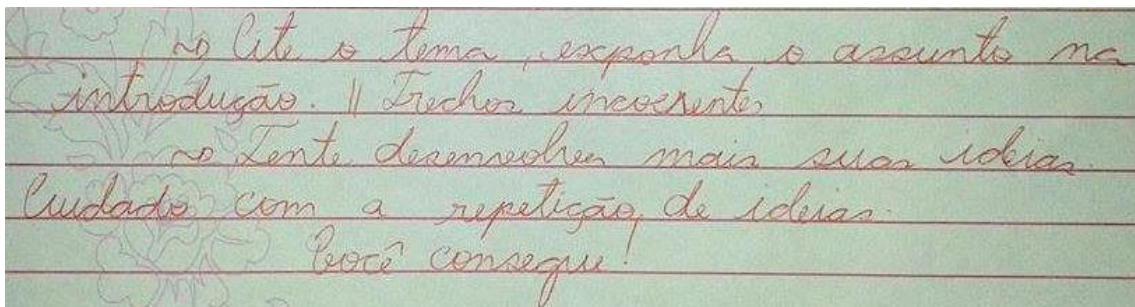 → Cite o tema, exponha o assunto na
introdução. || Trechos incoerentes
→ Tente desenvolver mais suas ideias.
Cuidado com a repetição de ideias.
Você consegue!